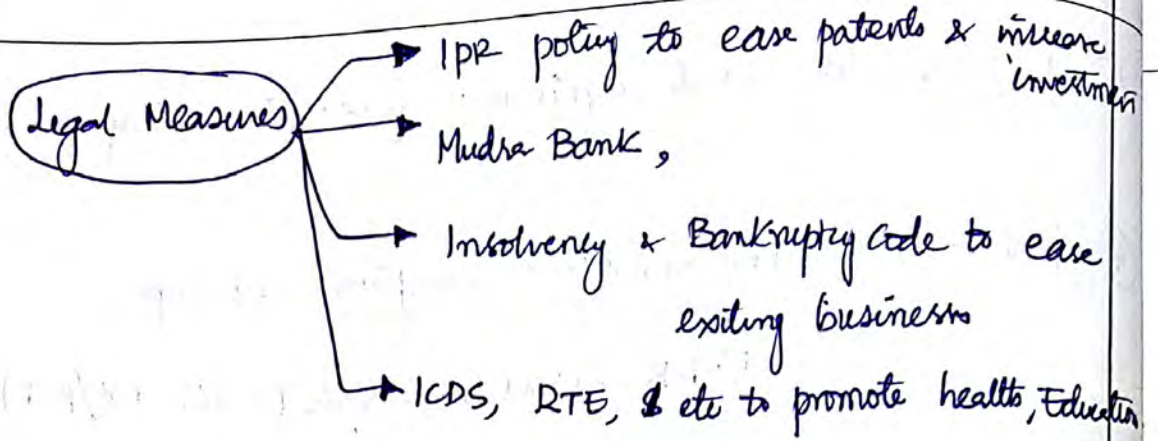 IPR policy to ease patents & increase
investmen
Legal Measures
Mudra Bank,
Insolvency & Bankruptcy Code to ease
exiting business
ICDS, RTE, etc to promote health, Education